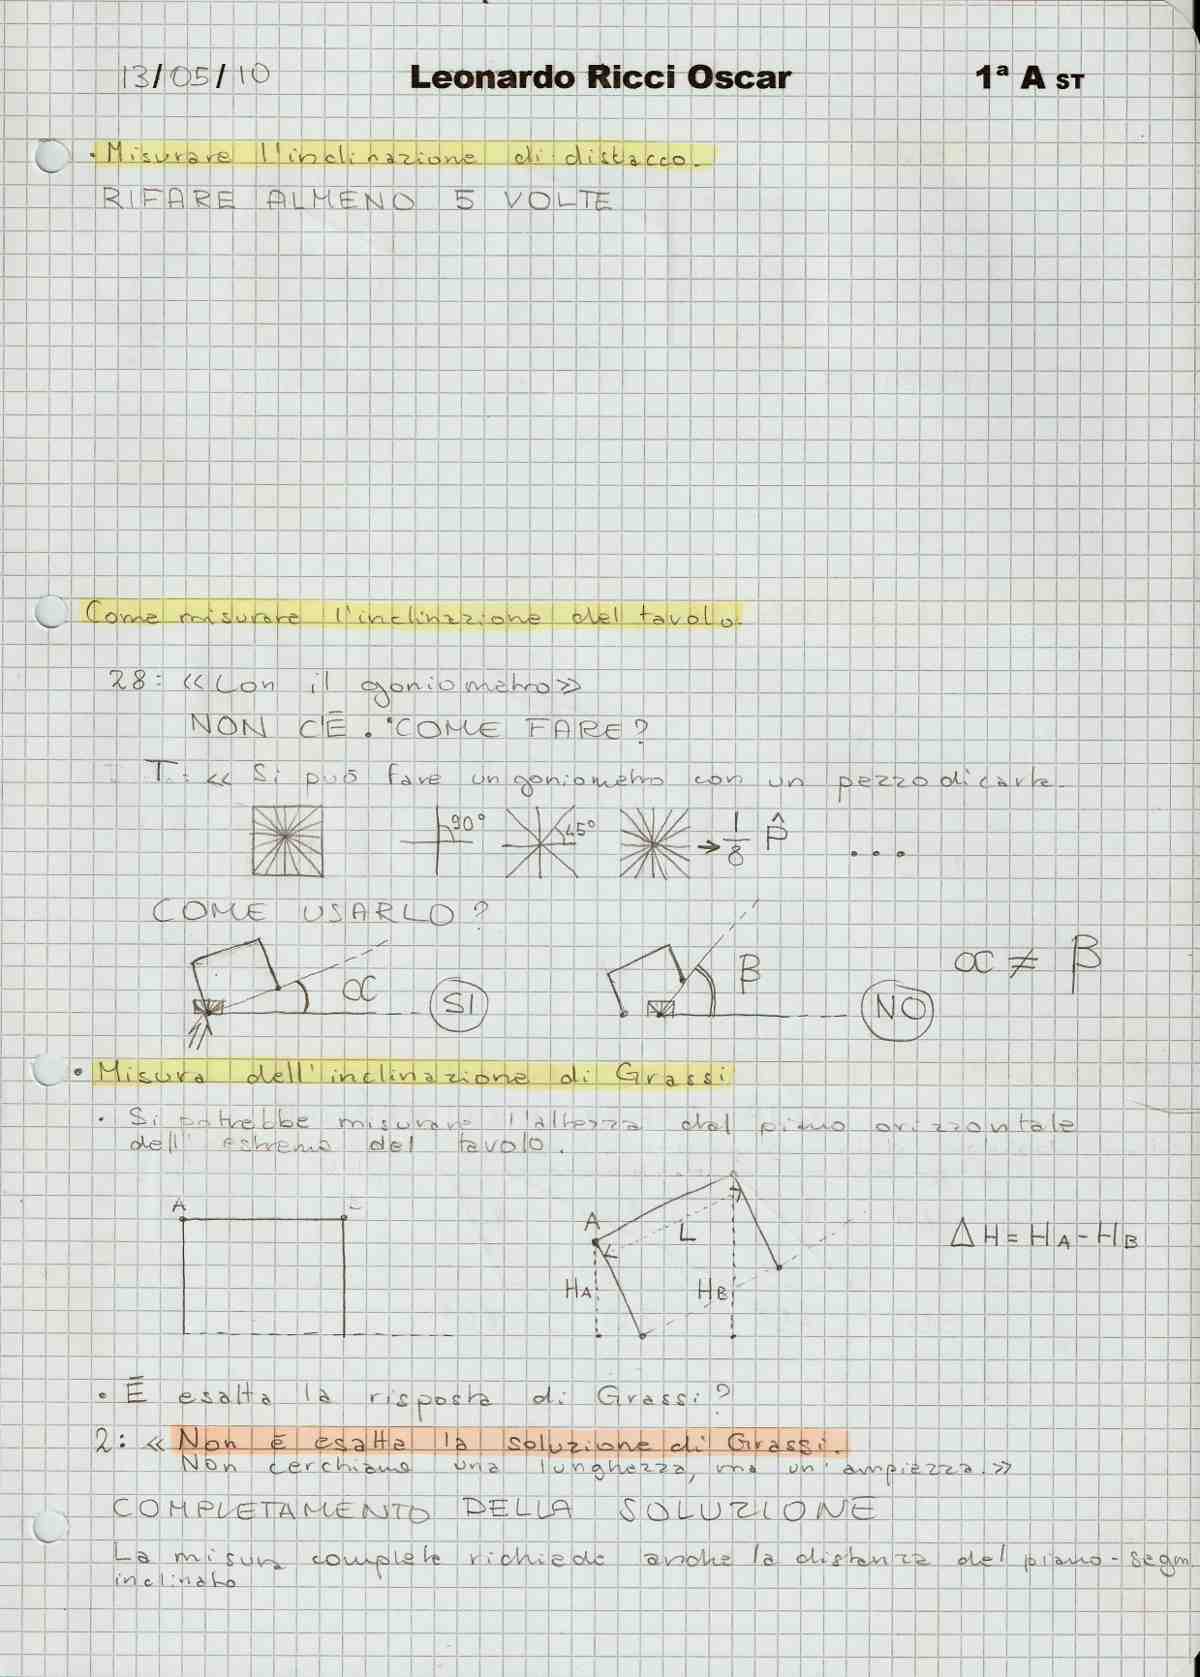 13/05/10 Leonardo Ricci Oscar 1ª A ST
• Misurare l'inclinazione di distacco.
RIFARE ALMENO 5 VOLTE
Come misurare l'inclinazione del tavolo.
28: «Con il goniometro»
NON C'È. COME FARE?
T.: « Si può fare un goniometro con un pezzo di carta.
90° 45° → 1/8 P̂ ...
COME USARLO?
α SI β NO α ≠ β
• Misura dell'inclinazione di Grassi
• Si potrebbe misurare l'altezza dal piano orizzontale
dell'estremo del tavolo.
A
A L
HA HB ΔH = HA - HB
• È esatta la risposta di Grassi?
2: « Non è esatta la soluzione di Grassi.
Non cerchiamo una lunghezza, ma un'ampiezza.»
COMPLETAMENTO DELLA SOLUZIONE
La misura completa richiede anche la distanza del piano-segm.
inclinato